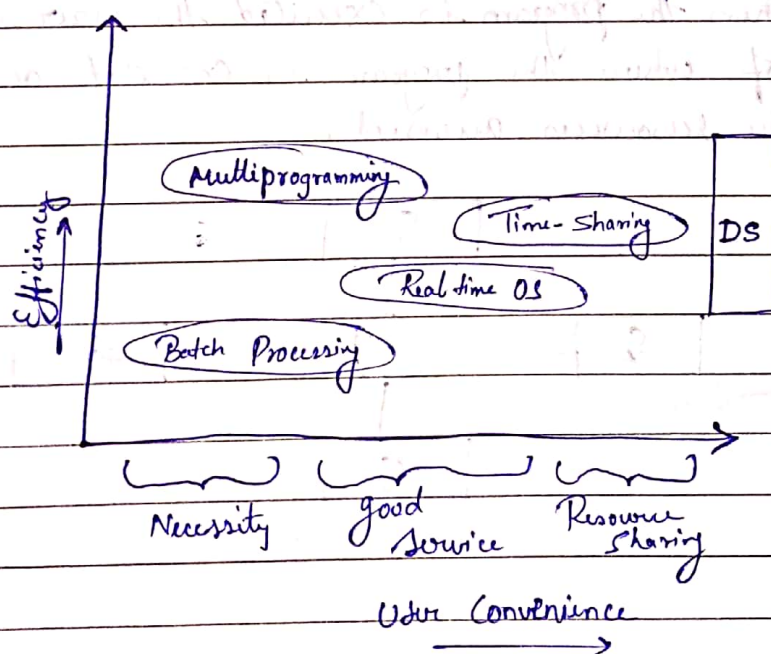 Multiprogramming
Time-Sharing
DS
Efficiency
Real time OS
Batch Processing
Necessity
good
Service
Resource
Sharing
User Convenience